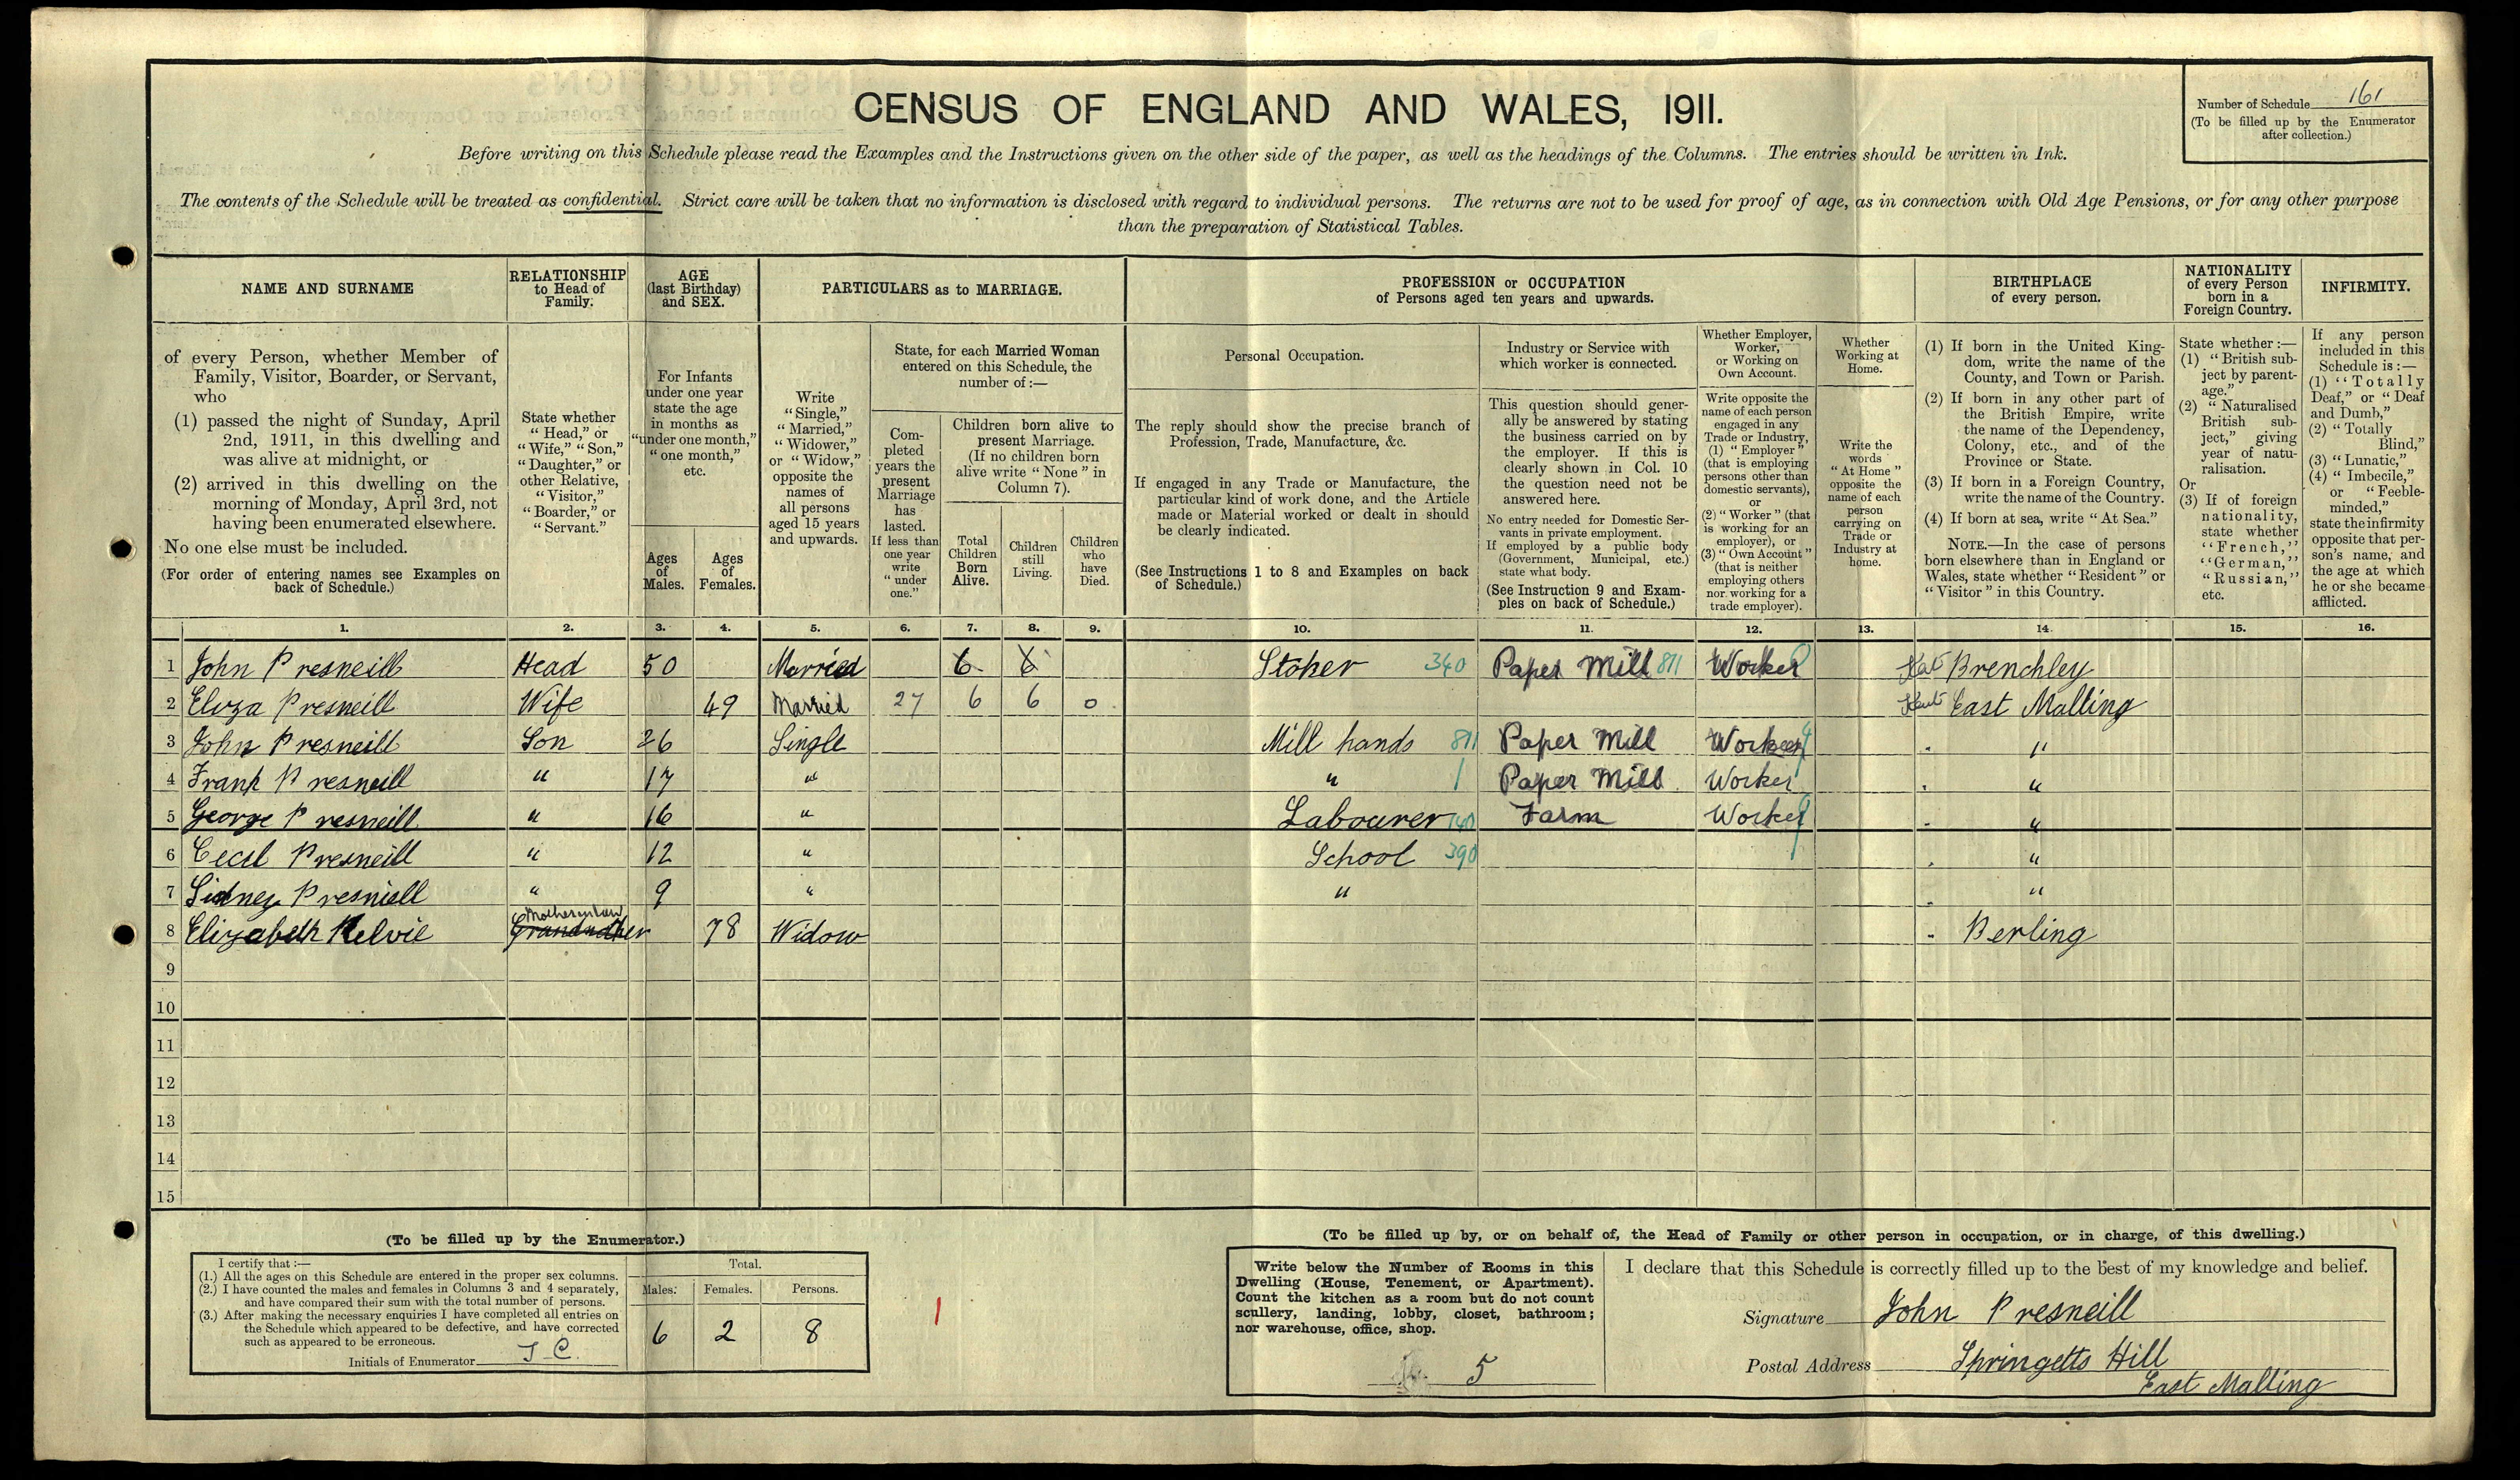 CENSUS OF ENGLAND AND WALES, 1911.
Number of Schedule 161
(To be filled up by the Enumerator
after collection.)
Before writing on this Schedule please read the Examples and the Instructions given on the other side of the paper, as well as the headings of the Columns. The entries should be written in Ink.
The contents of the Schedule will be treated as confidential. Strict care will be taken that no information is disclosed with regard to individual persons. The returns are not to be used for proof of age, as in connection with Old Age Pensions, or for any other purpose
than the preparation of Statistical Tables.
NAME AND SURNAME
of every Person, whether Member of
Family, Visitor, Boarder, or Servant,
who
(1) passed the night of Sunday, April
2nd, 1911, in this dwelling and
was alive at midnight, or
(2) arrived in this dwelling on the
morning of Monday, April 3rd, not
having been enumerated elsewhere.
No one else must be included.
(For order of entering names see Examples on
back of Schedule.)
RELATIONSHIP
to Head of
Family.
State whether
"Head," or
"Wife," "Son,"
"Daughter," or
other Relative,
"Visitor,"
"Boarder," or
"Servant."
AGE
(last Birthday)
and SEX.
For Infants
under one year
state the age
in months as
"under one month,"
"one month,"
etc.
Ages
of
Males.
Ages
of
Females.
PARTICULARS as to MARRIAGE.
Write
"Single,"
"Married,"
"Widower,"
or "Widow,"
opposite the
names of
all persons
aged 15 years
and upwards.
State, for each Married Woman
entered on this Schedule, the
number of:—
Com-
pleted
years the
present
Marriage
has
lasted.
If less than
one year
write
"under
one."
Children born alive to
present Marriage.
(If no children born
alive write "None" in
Column 7).
Total
Children
Born
Alive.
Children
still
Living.
Children
who
have
Died.
PROFESSION or OCCUPATION
of Persons aged ten years and upwards.
Personal Occupation.
The reply should show the precise branch of
Profession, Trade, Manufacture, &c.
If engaged in any Trade or Manufacture, the
particular kind of work done, and the Article
made or Material worked or dealt in should
be clearly indicated.
(See Instructions 1 to 8 and Examples on back
of Schedule.)
Industry or Service with
which worker is connected.
This question should gener-
ally be answered by stating
the business carried on by
the employer. If this is
clearly shown in Col. 10
the question need not be
answered here.
No entry needed for Domestic Ser-
vants in private employment.
If employed by a public body
(Government, Municipal, etc.)
state what body.
(See Instruction 9 and Exam-
ples on back of Schedule.)
Whether Employer,
Worker,
or Working on
Own Account.
Write opposite the
name of each person
engaged in any
Trade or Industry,
(1) "Employer"
(that is employing
persons other than
domestic servants),
or
(2) "Worker" (that
is working for an
employer), or
(3) "Own Account"
(that is neither
employing others
nor working for a
trade employer).
Whether
Working at
Home.
Write the
words
"At Home"
opposite the
name of each
person
carrying on
Trade or
Industry at
home.
BIRTHPLACE
of every person.
(1) If born in the United King-
dom, write the name of the
County, and Town or Parish.
(2) If born in any other part of
the British Empire, write
the name of the Dependency,
Colony, etc., and of the
Province or State.
(3) If born in a Foreign Country,
write the name of the Country.
(4) If born at sea, write "At Sea."
NOTE.—In the case of persons
born elsewhere than in England or
Wales, state whether "Resident" or
"Visitor" in this Country.
NATIONALITY
of every Person
born in a
Foreign Country.
State whether :—
(1) "British sub-
ject by parent-
age."
(2) "Naturalised
British sub-
ject," giving
year of natu-
ralisation.
Or
(3) If of foreign
nationality,
state whether
"French,"
"German,"
"Russian,"
etc.
INFIRMITY.
If any person
included in this
Schedule is:—
(1) "Totally
Deaf," or "Deaf
and Dumb,"
(2) "Totally
Blind,"
(3) "Lunatic,"
(4) "Imbecile,"
or "Feeble-
minded,"
state the infirmity
opposite that per-
son's name, and
the age at which
he or she became
afflicted.
1. 2. 3. 4. 5. 6. 7. 8. 9. 10. 11. 12. 13. 14. 15. 16.
1 John Presneill Head 50 Married 6 6 Stoker 340 Paper Mill 811 Worker Brenchley
2 Eliza Presneill Wife 49 Married 27 6 6 0 Kent East Malling
3 John Presneill Son 26 Single Mill hands 811 Paper Mill Worker "
4 Frank Presneill " 17 " " Paper Mill Worker "
5 George Presneill " 16 " Labourer 140 Farm Worker "
6 Cecil Presneill " 12 " School 390 "
7 Sidney Presniell " 9 " " "
8 Elizabeth Kelvie Grandmother Mother in law 78 Widow Berling
9
10
11
12
13
14
15
(To be filled up by the Enumerator.)
I certify that :—
(1.) All the ages on this Schedule are entered in the proper sex columns.
(2.) I have counted the males and females in Columns 3 and 4 separately,
and have compared their sum with the total number of persons.
(3.) After making the necessary enquiries I have completed all entries on
the Schedule which appeared to be defective, and have corrected
such as appeared to be erroneous.
Initials of Enumerator
Total.
Males. Females. Persons.
6 2 8
(To be filled up by, or on behalf of, the Head of Family or other person in occupation, or in charge, of this dwelling.)
Write below the Number of Rooms in this
Dwelling (House, Tenement, or Apartment).
Count the kitchen as a room but do not count
scullery, landing, lobby, closet, bathroom;
nor warehouse, office, shop.
5
I declare that this Schedule is correctly filled up to the best of my knowledge and belief.
Signature John Presneill
Postal Address Springetts Hill
East Malling